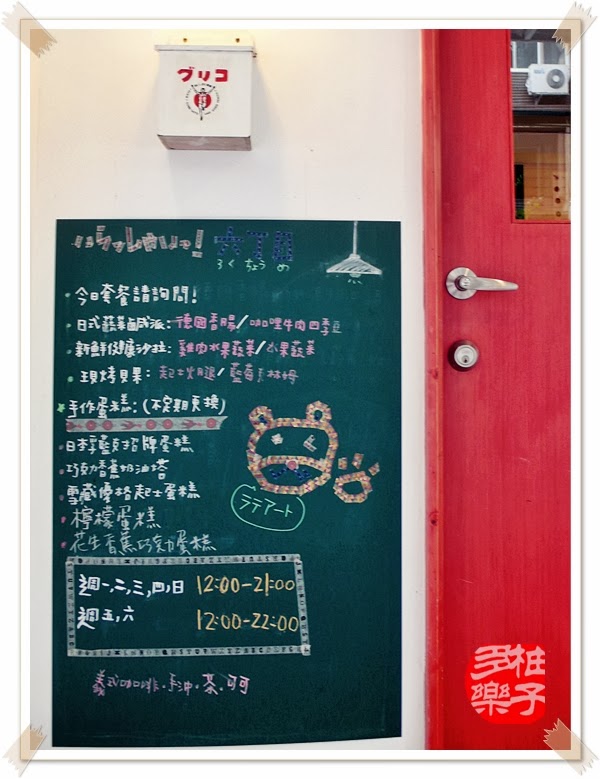 グリコ
いらっしゃいっ! 六丁目
ろくちょうめ
今日套餐請詢問!
日式蔬菜鹹派:德國香腸/咖哩牛肉四季豆
新鮮健康沙拉:雞肉水果蔬菜/水果蔬菜
現烤貝果:起士火腿/藍莓
手作蛋糕:(不定期更換)
招牌蛋糕
巧克力香蕉奶油塔
雪藏優格起士蛋糕
檸檬蛋糕
花生香蕉巧克力蛋糕
ラテアート
週一,二,三,四,日 12:00-21:00
週五,六 12:00-22:00
義式咖啡・手沖・茶・可可
多樂
桂子